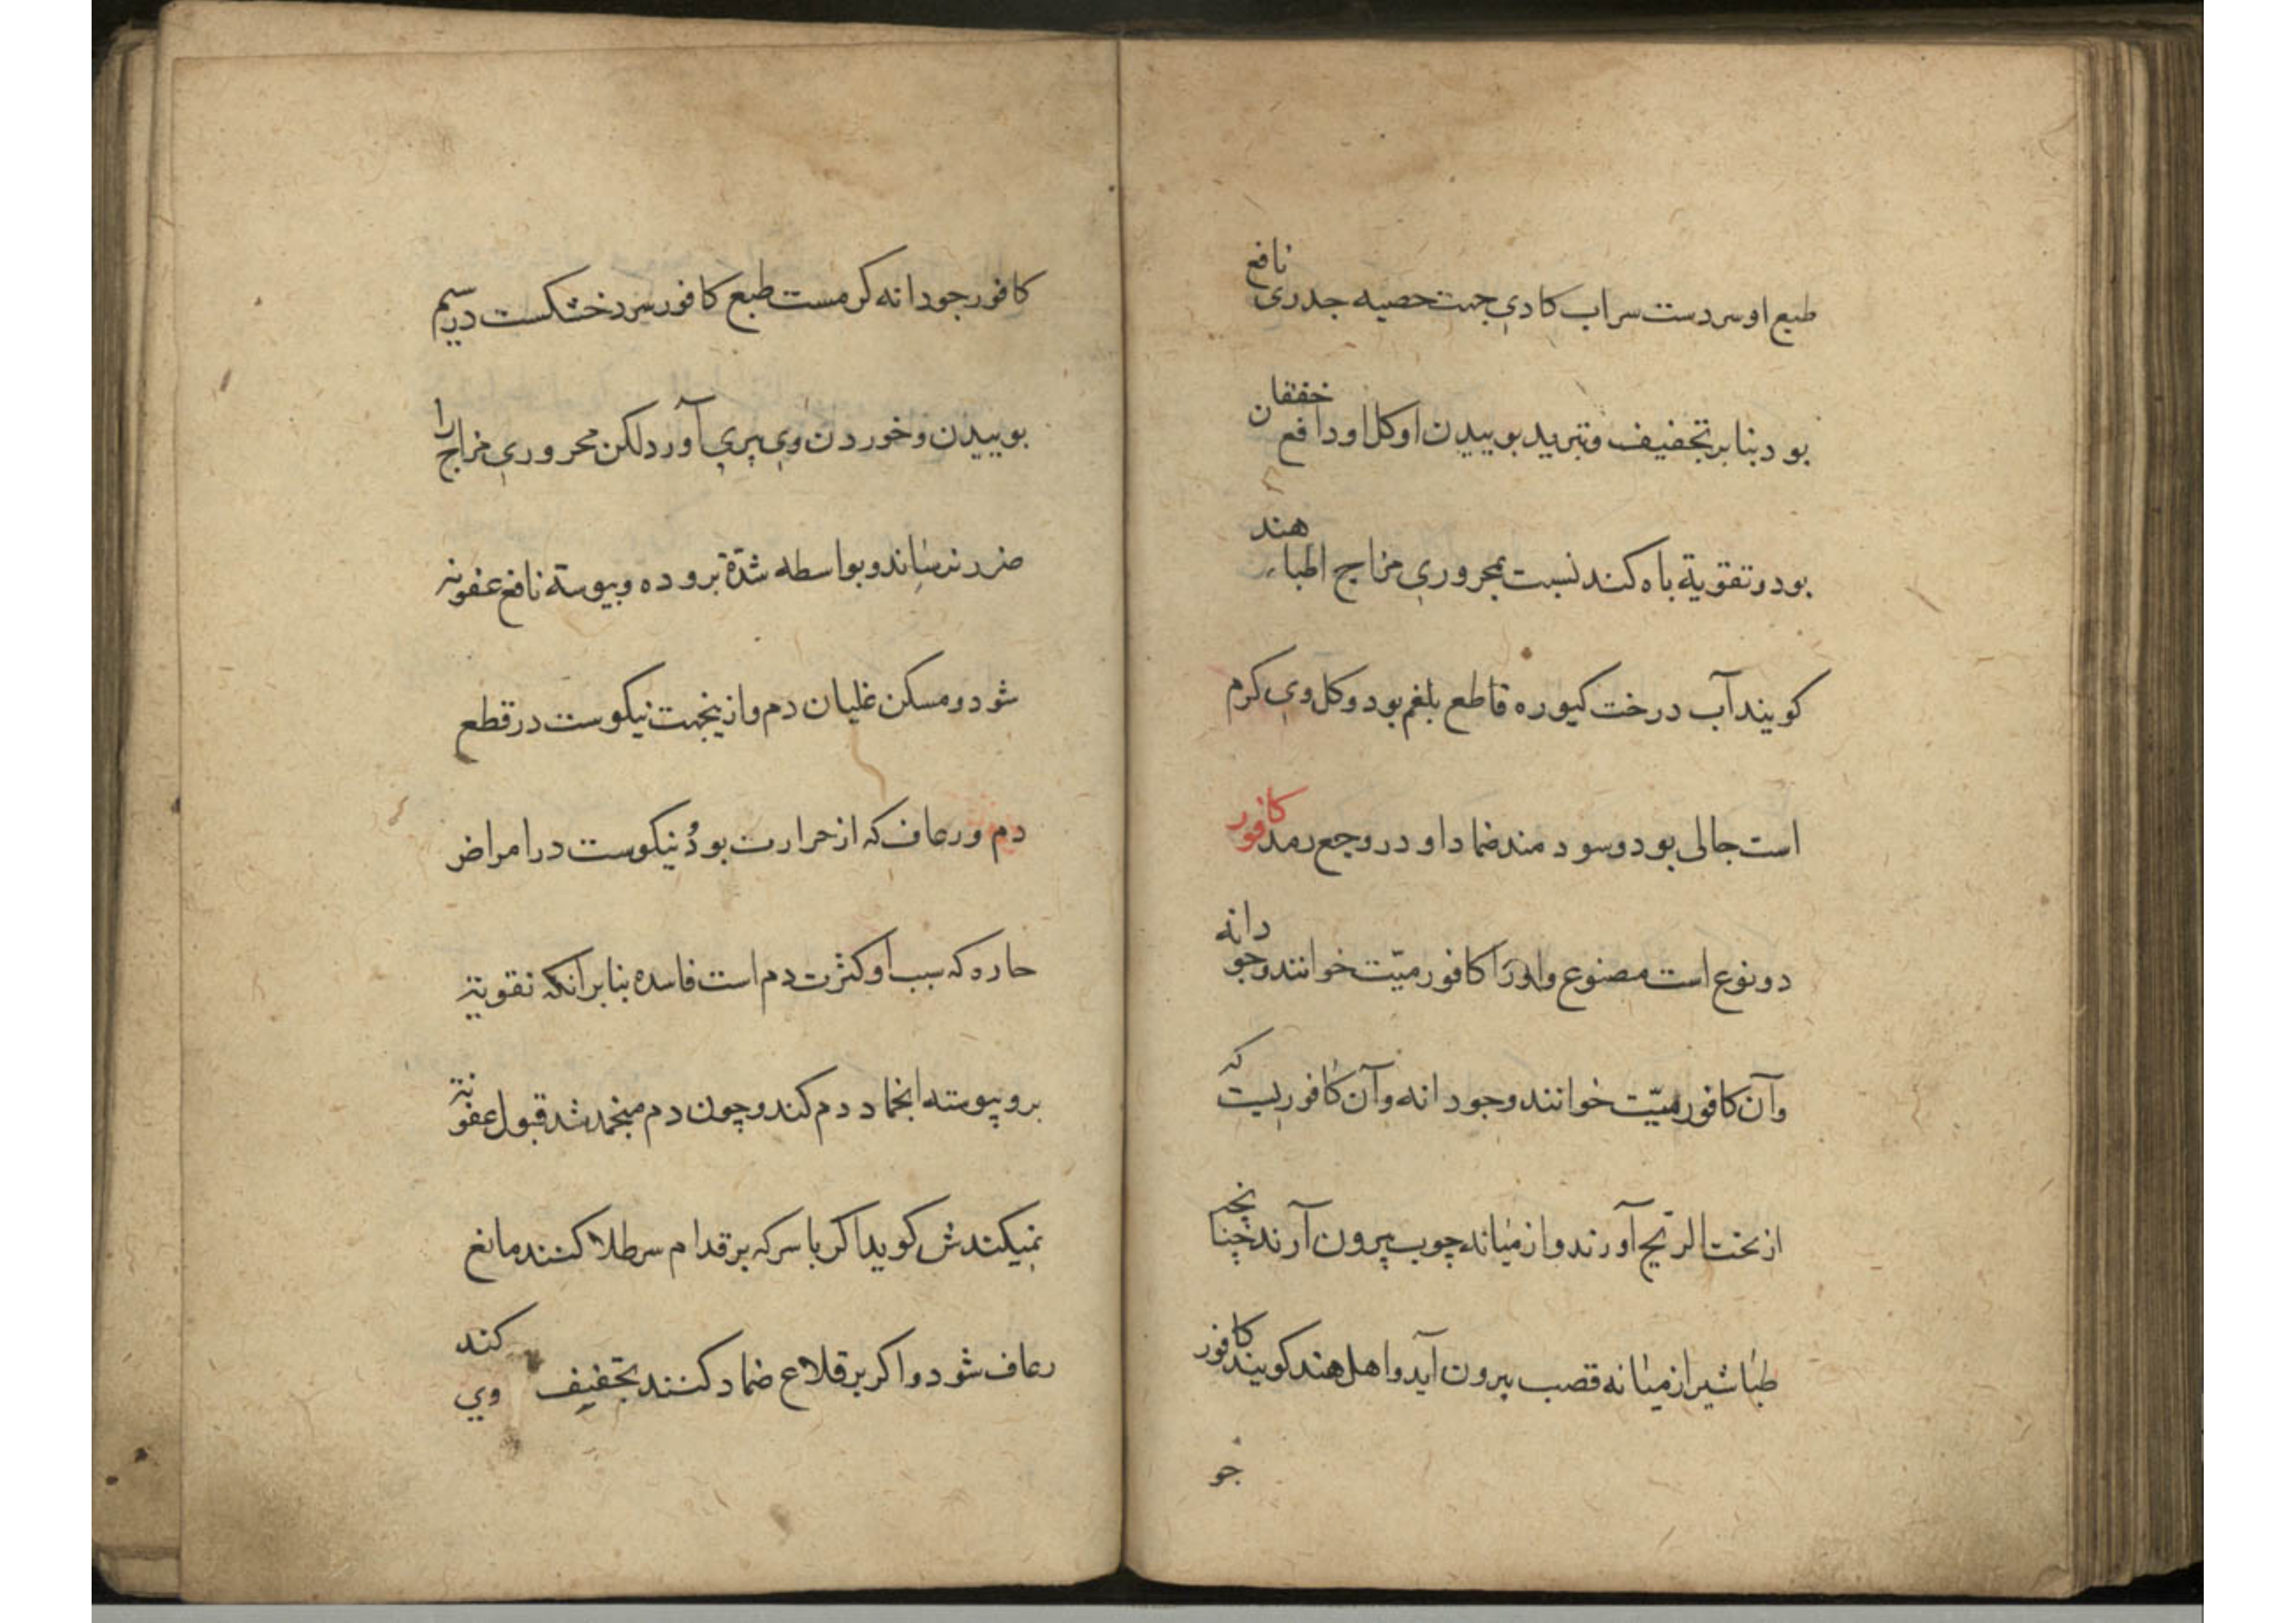 طبع او سردست سراب کادی جهت حصیه جدری نافع
بود بنابر تجفیف و تبرید بوییدن او کل او دافع خفقان
بود و تقویة باه کند نسبت بمحروری مزاج اطباء هند
کویند آب درخت کیوره قاطع بلغم بود و کل وی کرم
است جالی بود و سودمند ضماد او در وجع رمد کافور
دو نوع است مصنوع و اورا کافور میّت خوانند و جودانه
و آن کافور میّت خوانند وجودانه و آن کافوریست که
از تحت الریح آورند و از میانه چوب بیرون آرند چنانچه
طباشیر از میانه قصب بیرون آید و اهل هند کویند کافور
جو
کافور جودانه کرمست طبع کافور سرد خشکست در سیم
بوییدن و خوردن وی پیری آورد لکن محروری مزاج را
ضرر نرساند و بواسطه شدّة بروده و یبوسة نافع عفونه
شود و مسکن غلیان دم و ازینجهت نیکوست در قطع
دم و رعاف که از حرارت بود نیکوست در امراض
حاره که سبب او کثرت دم است فاسده بنابر آنکه تقویة
برو یبوسته انجماد دم کند و چون دم منجمد شد قبول عفونة
نمیکند ش کوید اکر با سرکه بر قدام سر طلا کنند مانع
رعاف شود و اکر بر قلاع ضماد کنند تجفیف وی کند